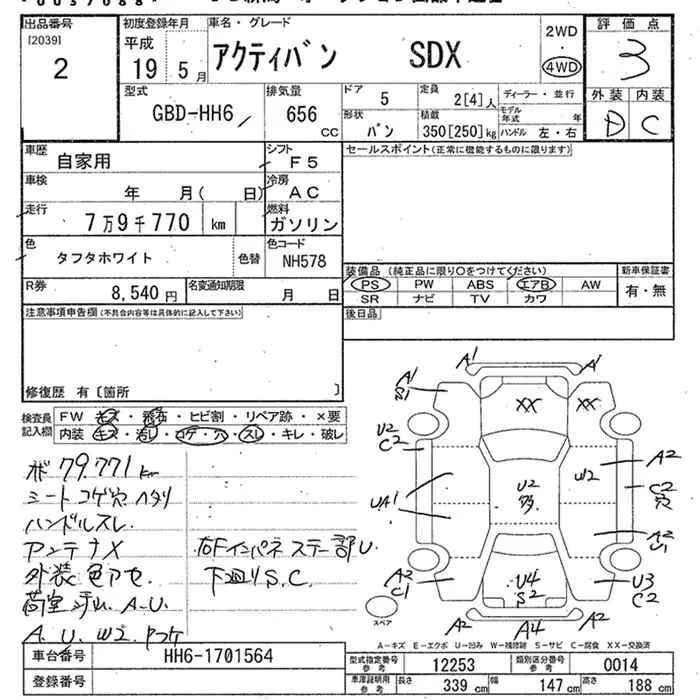 出品番号
[2039]
2
初度登録年月
平成
19 5月
車名・グレード
アクティバン SDX
2WD
・
4WD
評価点
3
外装 内装
D C
型式
GBD-HH6
排気量
656 CC
ドア 5
定員 2[4]人
ディーラー・並行
形状 バン
積載 350[250]kg
モデル年式 年
ハンドル 左・右
車歴 自家用
シフト F5
セールスポイント(正常に機能するものに限ります)
車検 年 月( 日)
冷房 AC
走行 7万9千770 km
燃料 ガソリン
色 タフタホワイト 色替
色コード NH578
装備品(純正品に限り○をつけてください)
新車保証書
PS PW ABS エアB AW
有・無
SR ナビ TV カワ
R券 8,540円
名変通知期限 月 日
後日品
注意事項申告欄(不具合内容等は具体的に記入して下さい)
修復歴 有〔箇所 〕
検査員記入欄
FW キズ・飛石・ヒビ割・リペア跡・×要
内装 キズ・汚レ・コゲ・穴・スレ・キレ・破レ
ボ 79.771km
シート コゲ穴 ハタリ
ハンドルスレ
アンテナX
外装 色アセ.
A.U.
A.U. W2
右Fインパネステー部U.
下廻りS.C.
A1 A1
A1
S1
XX XX
U2
C2
A2
W2
UA1
U2
C2
穴
A2
U1
A2
C1
U4
S2
U3
C2
A2 A4 A2
スペア
A-キズ E-エクボ U-凹み W-補修跡 S-サビ C-腐食 XX-交換済
車台番号 HH6-1701564
型式指定番号 参考 12253
類別区分番号 参考 0014
登録番号
車庫証明用 参考
長さ 339 cm
幅 147 cm
高さ 188 cm